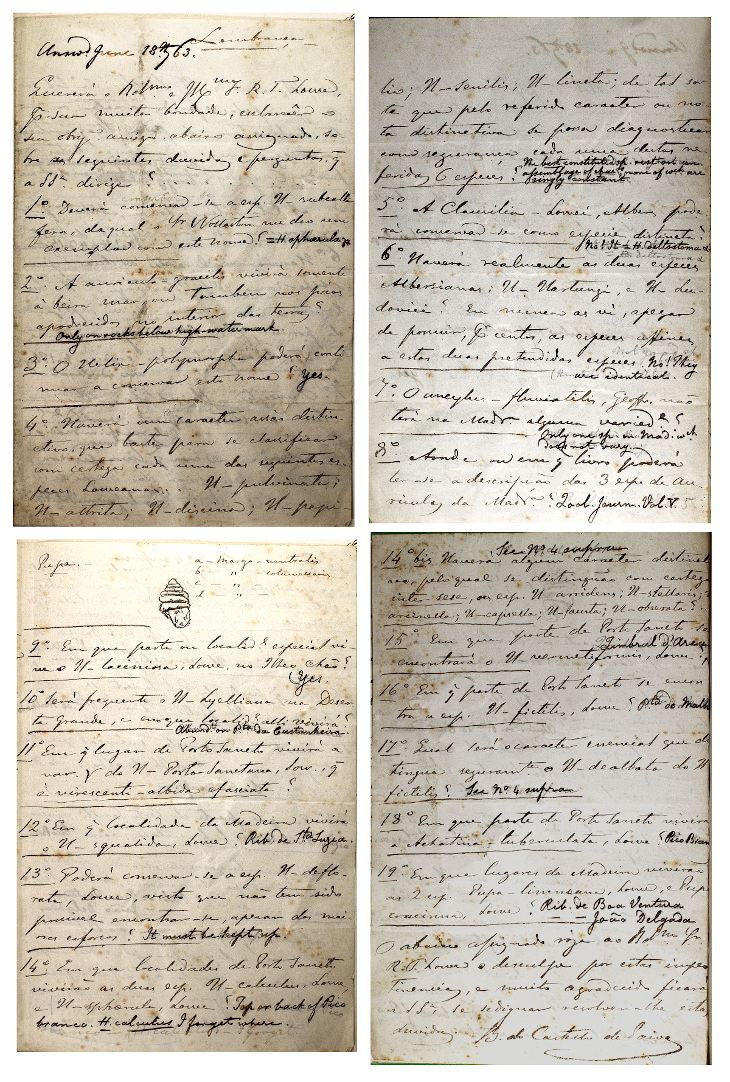 Lembrança
Answd. June 18th, 63.
Quererá o Rdmo. e Mmo. Sr. R. T. Lowe,
pr. sua muita bondade, esclarecer o
seu obrigo. amigo, abaixo assignado, so-
bre as seguintes duvidas e perguntas, q̃
a SSa. dirige?
1o. Deverá conservar-se a esp. H- subcalli-
fera, da qual o Sr. Wollaston me deo um
exemplar com este nome? = H. sphærula
2o. A auricula- gracilis viverá somente
á beira mar, ou tambem nos páos
apodrecidos no interior das terras?
Only on rocks below high-water mark.
3o. O Helix- polymorpha poderá conti-
nuar a conservar este nome? Yes.
4o. Haverá um caracter assás distin-
ctivo, que baste para se classificar
com certeza cada uma das seguintes es-
pecies Loweanas: . . H- pulvinata;
H- attrita; H- discina; H- papi-
lio; H- senilis; H- lincta; de tal sor-
te que pelo referido caracter ou no-
ta distinctiva se possa diagnosticar
com segurança cada uma destas re-
feridas 6 especies?
The best constituted sp. rest on an
assemblage of char.s; none of wch are
singly constant.
5o. A Clausilia- Lowei, Albers, pode-
rá conservar-se como especie distincta?
No! It = H. deltostoma
6o. Haverá realmente as duas especies
Albersianas; H- Hartungi, e H- Lu-
dovici? Eu nunca as vi, apezar
de possuir, pr. centos, as especies affines
a estas duas pretendidas especies. No! They
are identical.
7o. O ancylus- fluviatilis, Geoff. não
terá na Madra. alguma variede.?
Only one sp. in Mad. wch
does not vary.
8o. Aonde ou em q̃ livro poderá
ler-se a descripção das 3 esp. de Au-
riculas da Madra.? Zool. Journ. Vol. V.
Pupa.
a - margo- ventralis
b " columellaris
c - " -
d "
9o. Em que parte ou localide. especial vi-
ve o H- laciniosa, Lowe, no Ilheo Chão?
(Yes
10o. Será frequente o H- Lyelliana na Deser-
ta Grande, e em que localide. alli viverá?
Abund. on Pta. da Castanheira
11o. Em q̃ lugar de Porto Sancto viverá a
var. γ da H- Porto-Sanctana, Sow., q̃
é virescente-albida efasciata?
12o. Em q̃ localidade da Madeira viverá
o H- squalida, Lowe? Rib. de Sta. Luzia.
13o. Poderá conservar-se a esp. H- deflo-
rata, Lowe, visto que não tem sido
possivel encontrar-se, apezar dos mai-
ores esforços? It must be kept up.
14o. Em que localidades de Porto Sancto
viverão as duas esp. H- calculus, Lowe,
e H- sphærula, Lowe? Top or back of Pico
branco. H. calculus I forget where.
14o. bis Haverá algum caracter distincti-
See No. 4 supra
vo, pelo qual se distinguão com certeza
inter-sese, os esp. H- arridens; H- stellaris;
arcinella; H- capsella; H- fausta; H- obserata?
15o. Em que parte de Porto Sancto se
encontrará o H- vermetiformis, Lowe?
Zimbral d'Area
16o. Em q̃ parte de Porto Sancto se encon-
tra a esp. H- fictilis, Lowe? Pta. do Malh
17o. Qual será o caracter essencial que dis-
tingua seguramte. o H- dealbata do H-
fictilis? See No. 4 supra
18o. Em que parte de Porto Sancto viverá
a Achatina- tuberculata, Lowe? Pico Bran
19o. Em que lugares da Madeira viverão
as 2 esp. Pupa- limnæana, Lowe, e Pupa
concinna, Lowe? Rib. de Boa Ventura
= João Delgada
O abaixo assignado roga ao Rdmo. Sr.
R. T. Lowe o desculpe por estas imper-
tinencias, e muito agradecido ficará
a SSa., se se dignar resolver-lhe estas
duvidas.
B. do Castello de Paiva